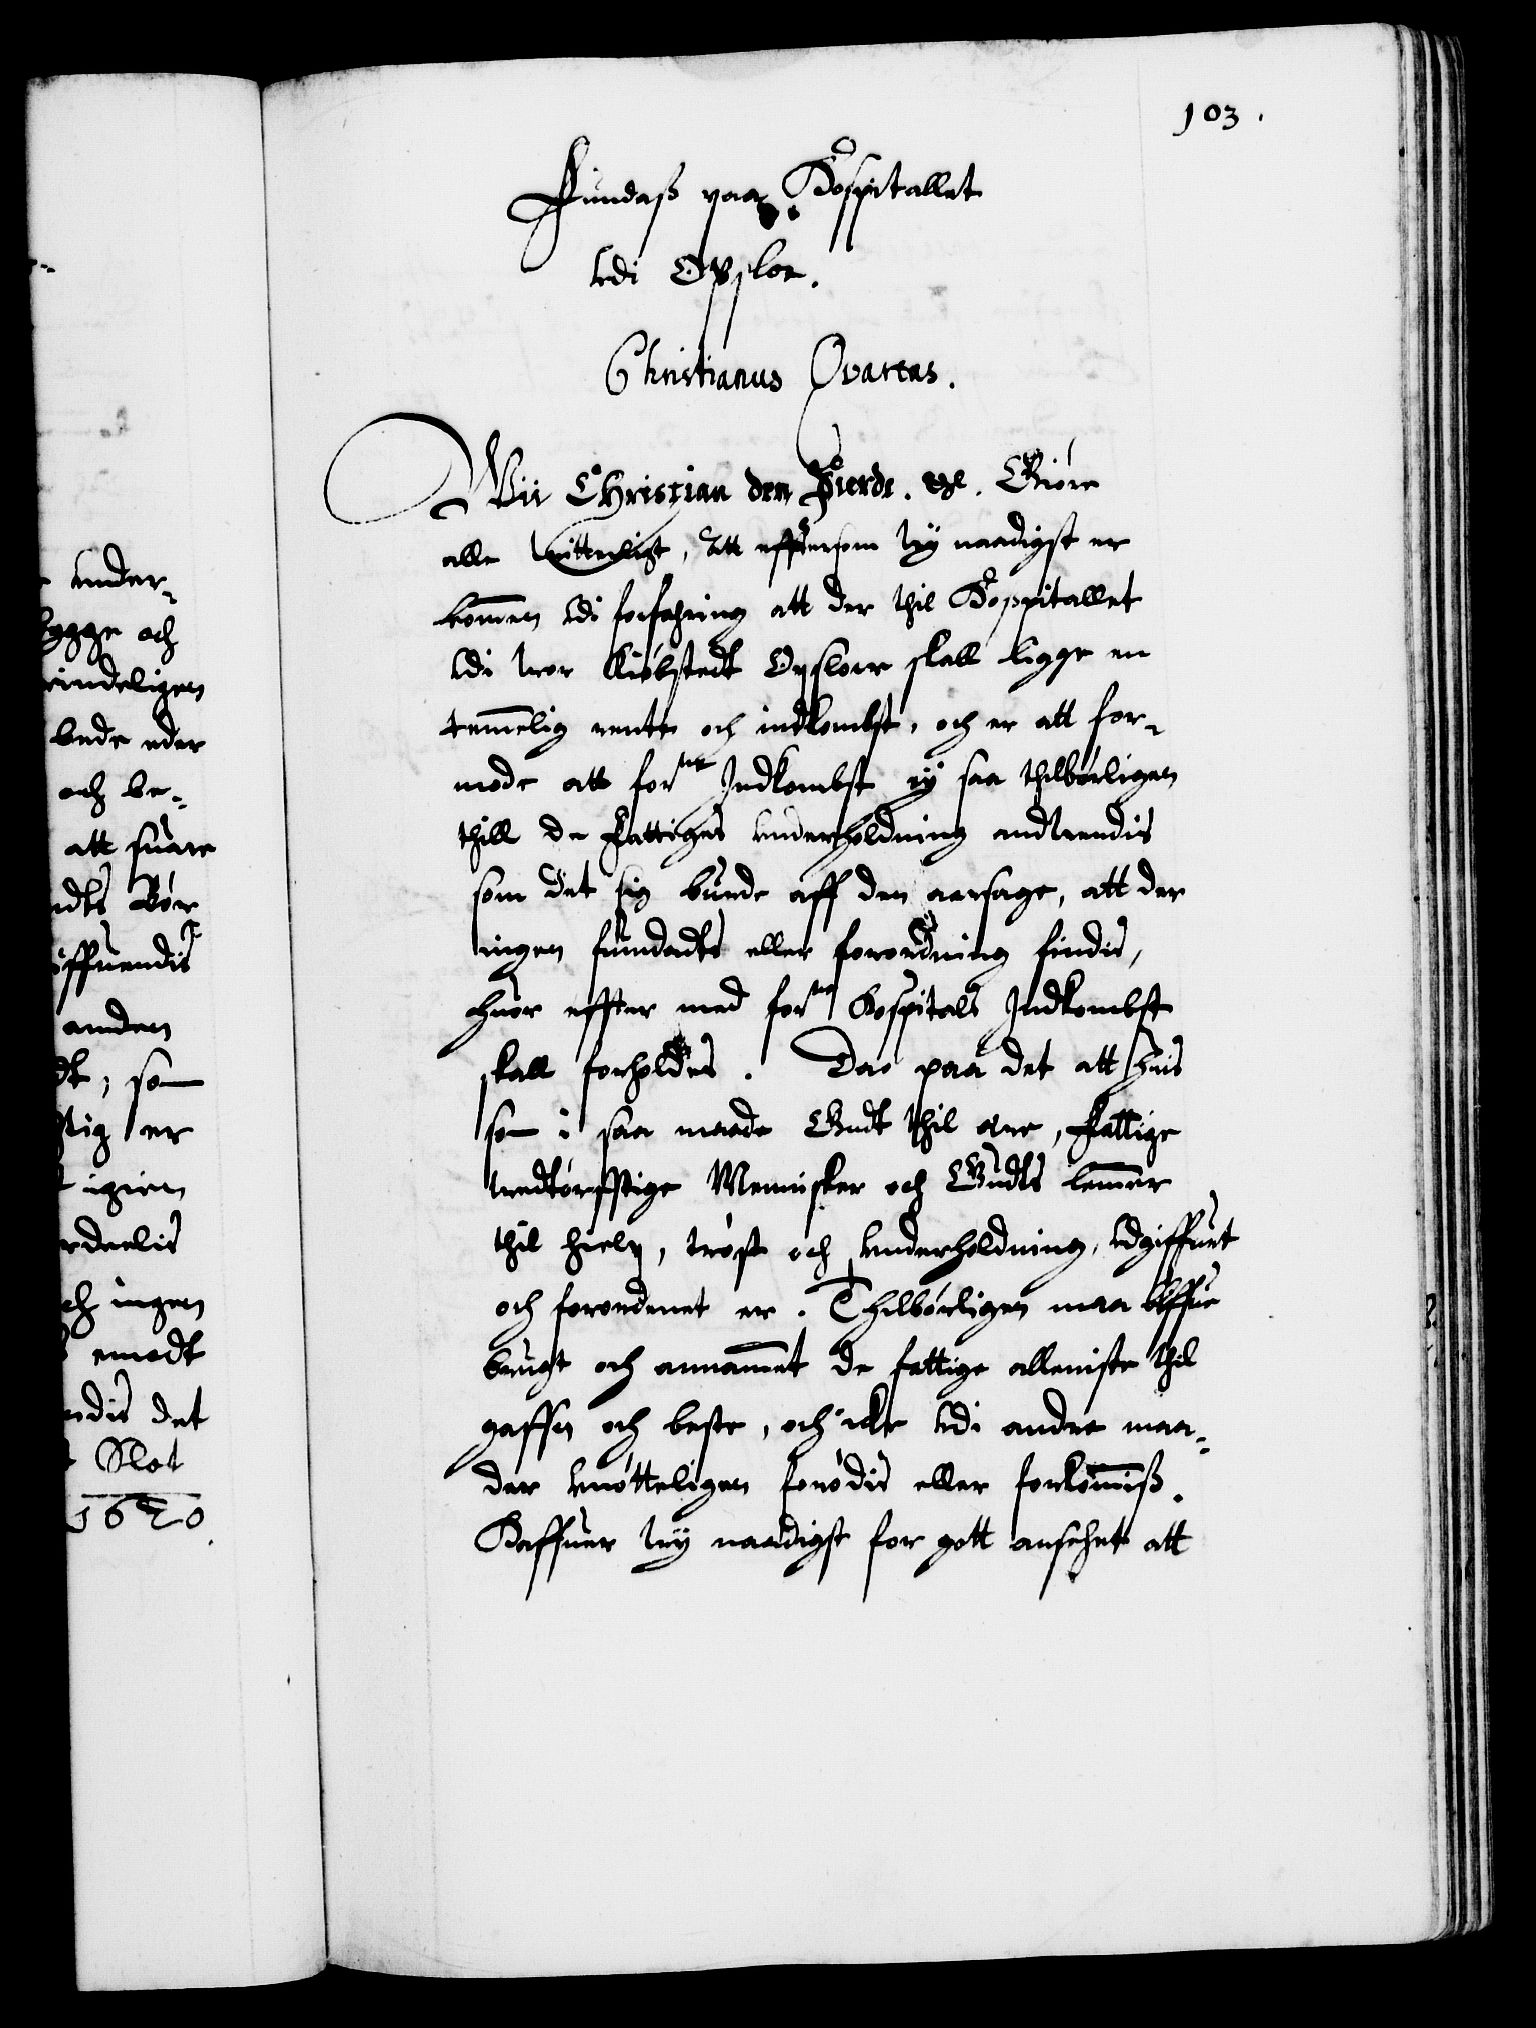 103.
Fundaß paa Hospitallet
vdi Opsloe.
Christianus Qvartus.
Wii Christian den Fierde. etc. Giøre
alle witterligt, Att efftersom wy naadigst er
kommen vdi forfahring att der thil Hospitallet
vdi wor Kiøbstedt Opsloe skall ligge en
temmelig rente och indkombst, och er att for-
mode att forne Indkombst ey saa thilbørligen
thill de Fattiges vnderholdning anduendis
som det sig burde aff den aarsage, att der
ingen fundadts eller forordning findis,
huor effter med forne Hospitals Indkombst
skall forholdes. Daa paa det att huis
som i saa maade Gudt thil ære, Fattige
nedtørfftige Menisker och Gudts lemmer
thil hielp, trøst och vnderholdning, vdgiffuet
och forordenet er. Thilbørligen maa bliffue
brugt och annammet de fattige alleniste thil
gaffn och beste, och icke vdi andre maa-
der vnøtteligen forødis eller forkommiß.
Haffuer wy naadigst for gott anseet att
vnder-
bygge och
rindeligen
bede eder
och be-
att suare
ndts Bør
iffuendis
anden
dt, som
tig er
igien
rdeelis
ch ingen
emodt
ndis det
Slot
1620